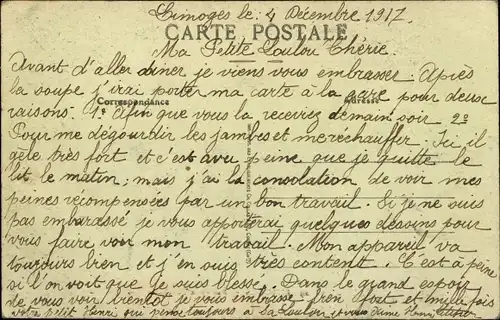 Limoges le 4 Décembre 1917
CARTE POSTALE
Ma Petite Loulou Chérie.
Avant d'aller diner je viens vous embrasser. Après
la soupe j'irai porter ma carte à la gare pour deux
Correspondance Adresse
raisons. 1º Afin que vous la receviez demain soir 2º
Pour me dégourdir les jambes et me réchauffer. Ici il
gèle très fort et c'est avec peine que je quitte le
lit le matin; mais j'ai la consolation de voir mes
peines recompensées par un bon travail. Si je ne suis
pas embarassé je vous apporterai quelques dessins pour
vous faire voir mon travail. Mon appareil va
toujours bien et j'en suis très content. C'est à peine
si l'on voit que je suis blessé. Dans le grand espoir
de vous voir bientôt je vous embrasse bien fort et mille fois
votre petit Henri qui pense toujours à sa Loulou